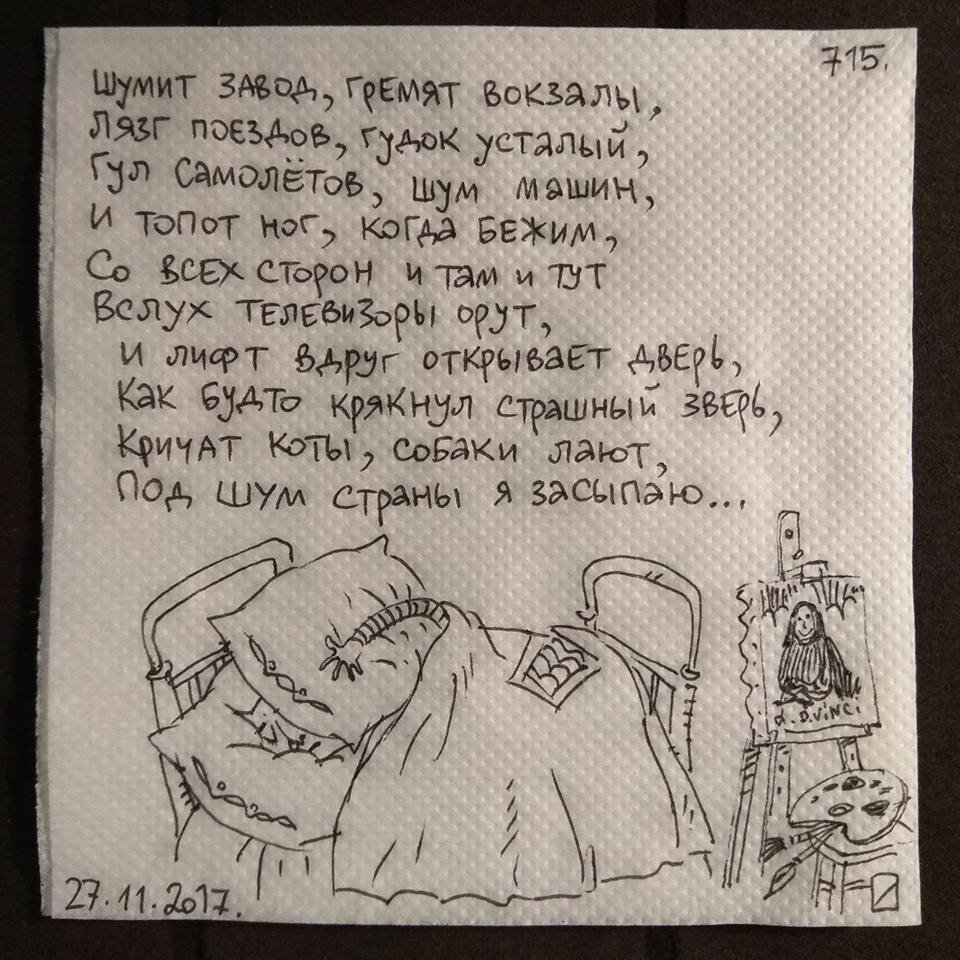 715.
Шумит завод, гремят вокзалы,
Лязг поездов, гудок усталый,
Гул самолётов, шум машин,
И топот ног, когда бежим,
Со всех сторон и там и тут
Вслух телевизоры орут,
И лифт вдруг открывает дверь,
Как будто крякнул страшный зверь,
Кричат коты, собаки лают,
Под шум страны я засыпаю...
d. D. ViNCi
27.11.2017.